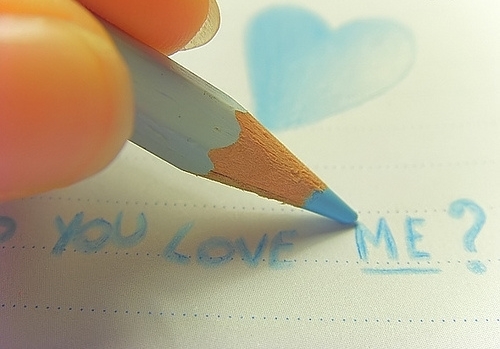 O YOU LOVE ME?